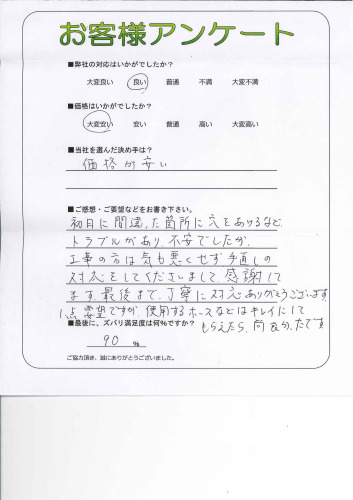 お客様アンケート
■弊社の対応はいかがでしたか?
大変良い 良い 普通 不満 大変不満
■価格はいかがでしたか?
大変安い 安い 普通 高い 大変高い
■当社を選んだ決め手は?
価格が安い
■ご感想・ご要望などをお書き下さい。
初日に間違った箇所に穴をあけるなど、
トラブルがあり、不安でしたが、
工事の方は気も悪くせず手直しの
対応をしてくださいまして、感謝して
ます。最後まで、丁寧に対応ありがとうございます。
1点要望ですが、使用するホースなどはキレイにして
もらえたら、尚良かったです
■最後に、ズバリ満足度は何%ですか?
90 %
ご協力頂き、誠にありがとうございました。